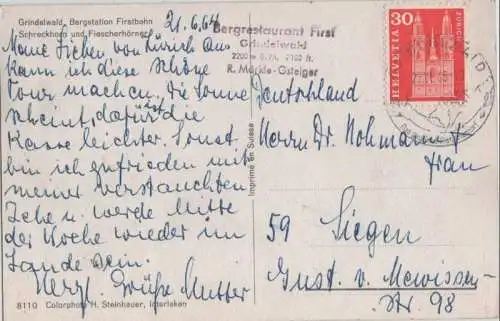 Grindelwald, Bergstation Firstbahn
Schreckhorn und Fiescherhörner
21.6.64
Meine Lieben von Zürich aus
kann ich diese schöne
Tour machen, die Sonne
scheint, dafür ist die
Kasse leichter. Sonst
bin ich zufrieden mit
meiner verstauchten
Zehe u. werde Mitte
der Woche wieder im
Lande sein.
Herzl. Grüße Mutter
8110 Colorphoto H. Steinhauer, Interlaken
Imprimé en Suisse
Bergrestaurant First
Grindelwald
2200 m
R. Märkle-Gsteiger
30
HELVETIA
ZÜRICH
Deutschland
Herrn Dr. Nohmann u.
Frau
59 Siegen
Gust. v. Mevissen-
Str. 98